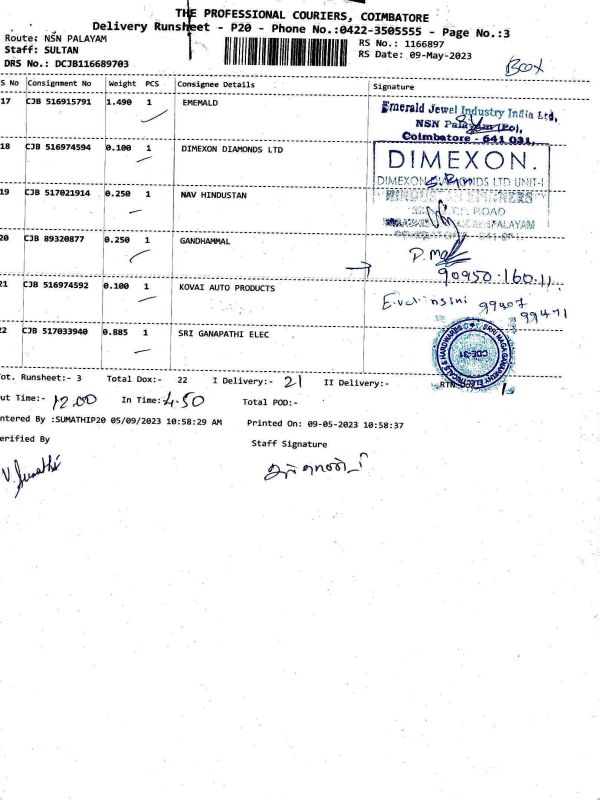 THE PROFESSIONAL COURIERS, COIMBATORE
Delivery Runsheet - P20 - Phone No.:0422-3505555 - Page No.:3
Route: NSN PALAYAM
RS No.: 1166897
Staff: SULTAN
RS Date: 09-May-2023
DRS No.: DCJB116689703
Box
S No Consignment No Weight PCS Consignee Details Signature
17 CJB 516915791 1.490 1 EMEMALD
Emerald Jewel Industry India Ltd,
NSN Palayam (Po),
Coimbatore - 641 031.
18 CJB 516974594 0.100 1 DIMEXON DIAMONDS LTD
DIMEXON.
DIMEXON DIAMONDS LTD UNIT-I
19 CJB 517021914 0.250 1 NAV HINDUSTAN
ROAD
20 CJB 89320877 0.250 1 GANDHAMMAL
90950.160.11
21 CJB 516974592 0.100 1 KOVAI AUTO PRODUCTS
22 CJB 517033940 0.885 1 SRI GANAPATHI ELEC
CDE-31
ot. Runsheet:- 3 Total Dox:- 22 I Delivery:- 21 II Delivery:-
ut Time:- 12.00 In Time:- 4.50 Total POD:-
ntered By :SUMATHIP20 05/09/2023 10:58:29 AM Printed On: 09-05-2023 10:58:37
erified By
Staff Signature
V. Sumathi